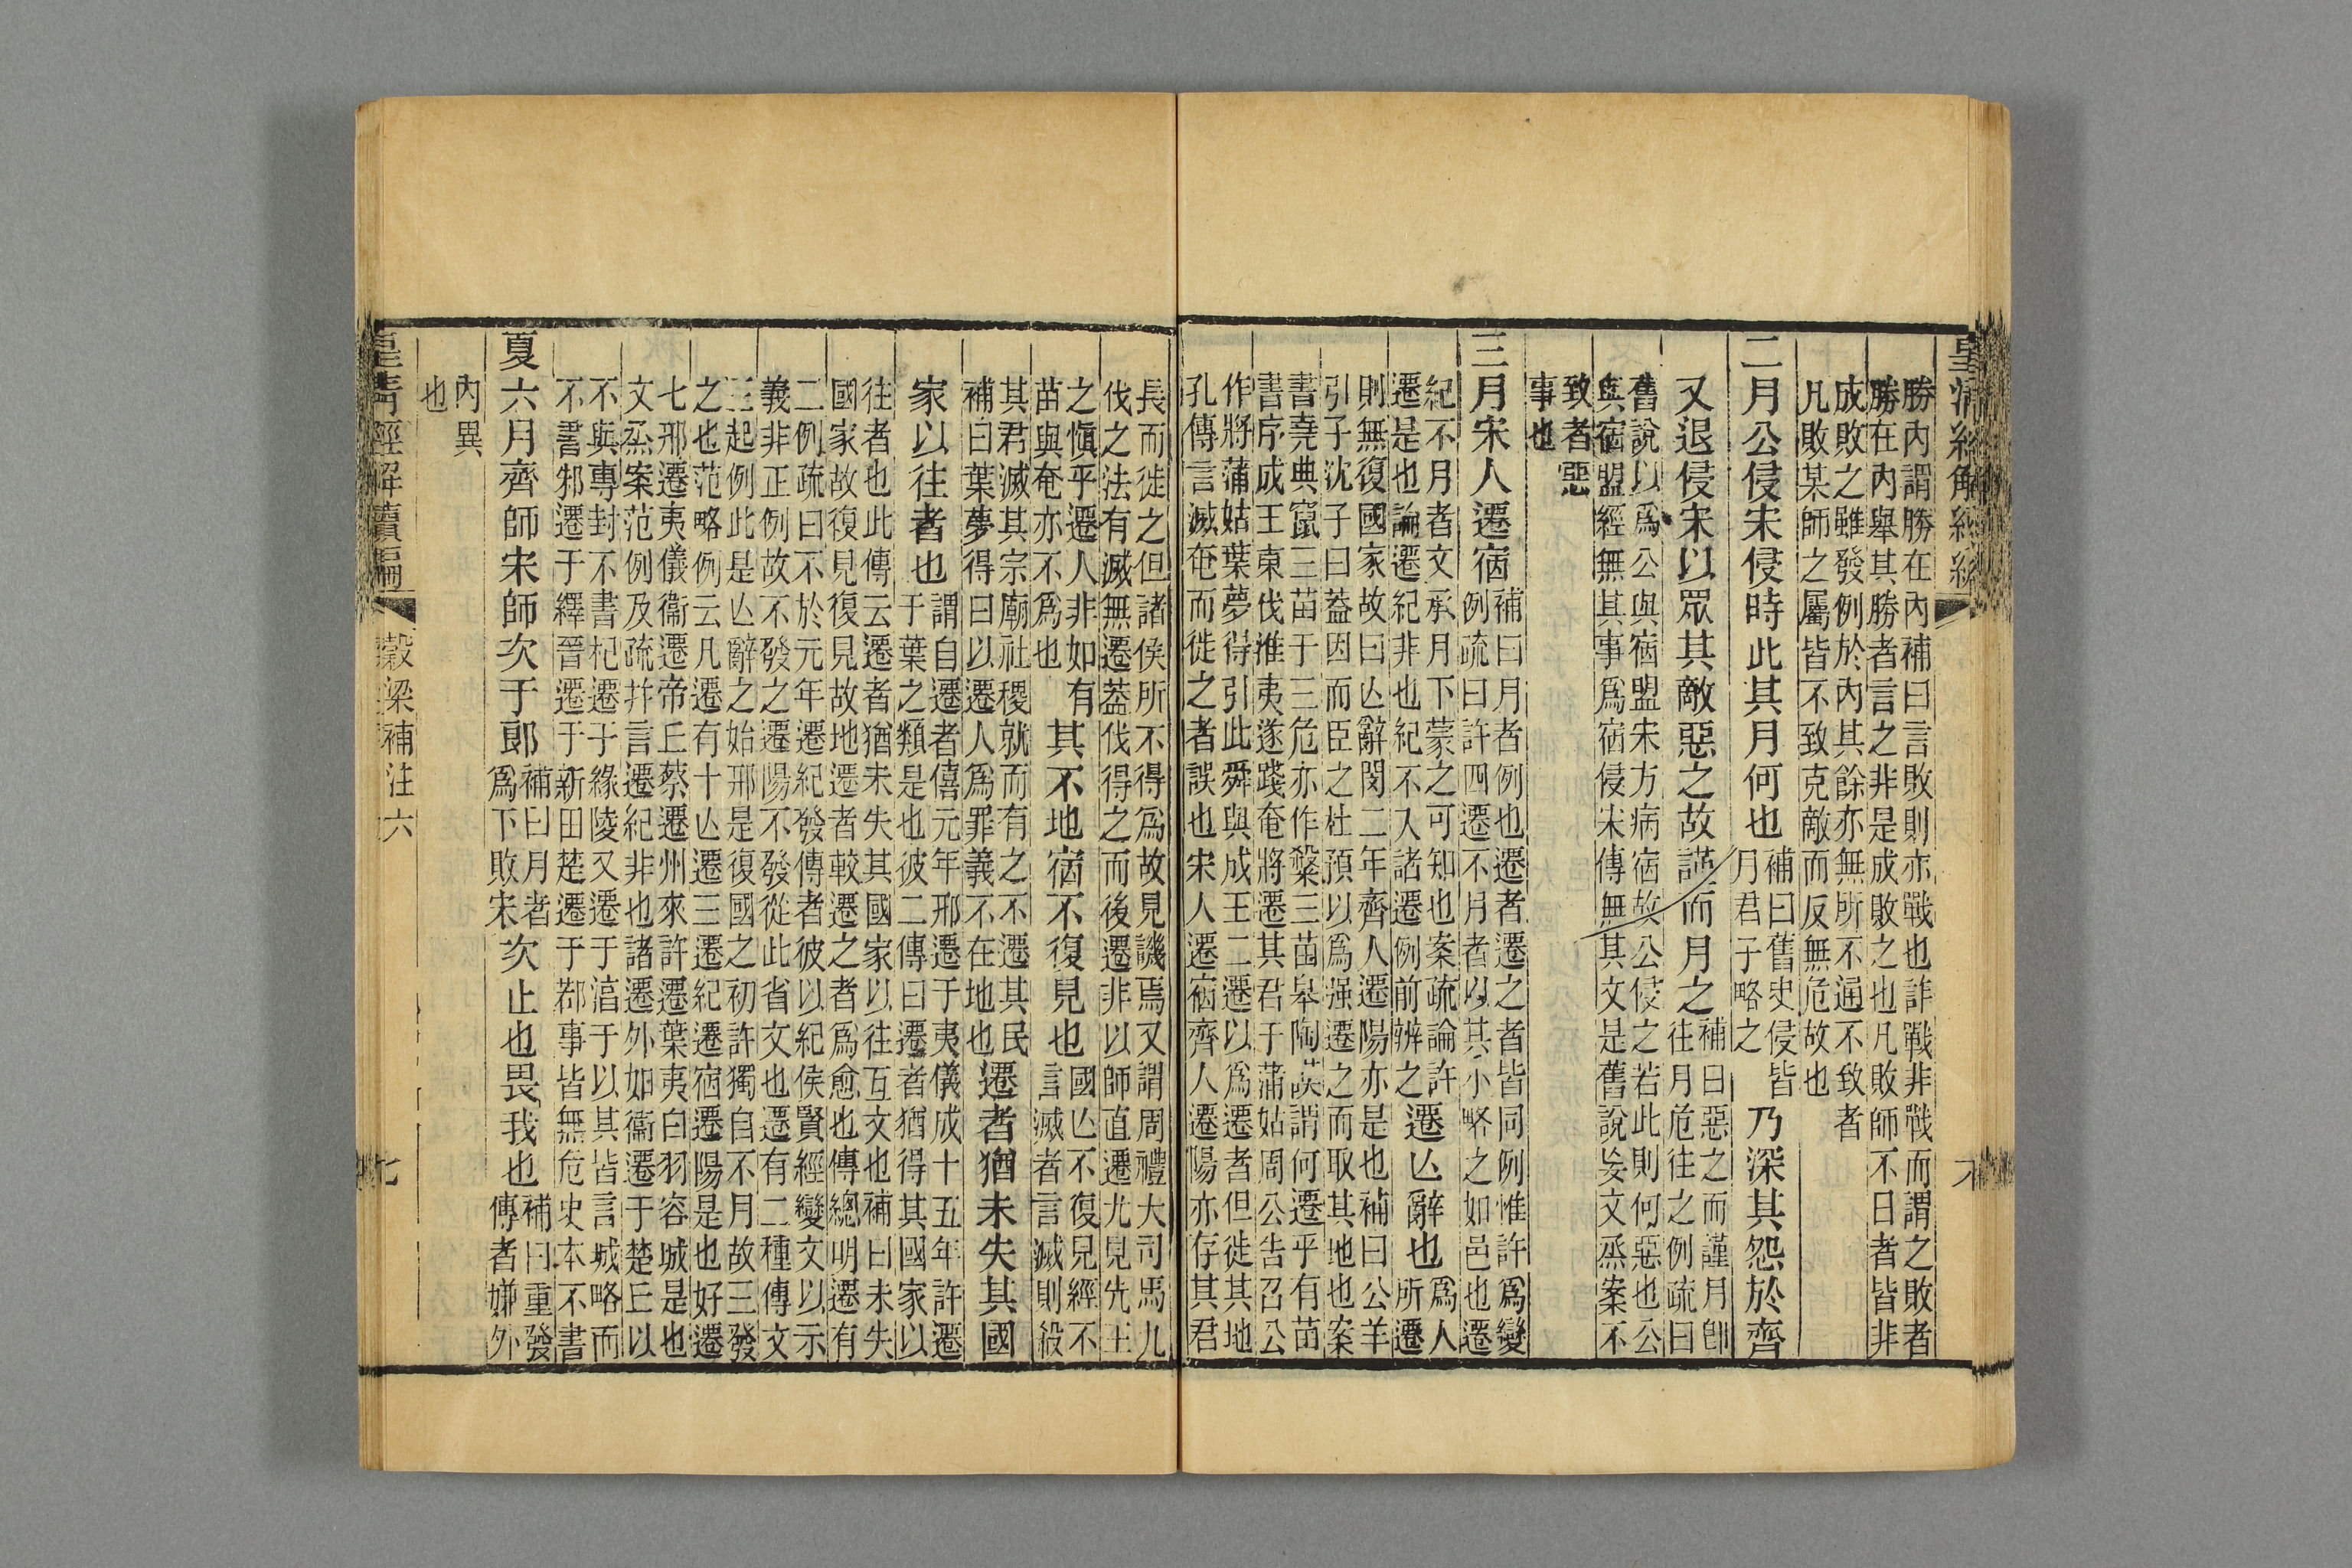 皇清經解續編
勝內謂勝在內補曰言敗則亦戰也詐戰非戰而謂之敗者
勝在內舉其勝者言之非是成敗之也凡敗師不日者皆非
成敗之雖發例於內其餘亦無所不通不致者
凡敗某師之屬皆不致克敵而反無危故也
二月公侵宋侵時此其月何也補曰舊史侵皆月君子略之乃深其怨於齊
又退侵宋以眾其敵惡之故謹而月之補曰惡之而謹月卽往月危往之例疏曰
舊說以為公與宿盟宋方病宿故公侵之若此則何惡也公
與宿盟經無其事為宿侵宋傳無其文是舊說妄文烝案不
致者惡
事也
三月宋人遷宿補曰月者例也遷者遷之者皆同例惟許為變例疏曰許四遷不月者以其小略之如邑也遷
紀不月者文承月下蒙之可知也案疏論許遷是也論遷紀非也紀不入諸遷例前辨之遷亾辭也為人所遷
則無復國家故曰亾辭閔二年齊人遷陽亦是也補曰公羊
引子沈子曰葢因而臣之杜預以為强遷之而取其地也案
書堯典竄三苗于三危亦作㲀三苗皋陶謨謂何遷乎有苗
書序成王東伐淮夷遂踐奄將遷其君于蒲姑周公告召公
作將蒲姑葉夢得引此舜與成王二遷以為遷者但徙其地
孔傳言滅奄而徙之者誤也宋人遷宿齊人遷陽亦存其君
長而徙之但諸侯所不得為故見譏焉又謂周禮大司馬九
伐之法有滅無遷葢伐得之而後遷非以師直遷尤見先王
之愼乎遷人非如有苗與奄亦不為也其不地宿不復見也國亾不復見經不言滅者言滅則殺
其君滅其宗廟社稷就而有之不遷其民補曰葉夢得曰以遷人為罪義不在地也遷者猶未失其國
家以往者也謂自遷者僖元年邢遷于夷儀成十五年許遷于葉之類是也彼二傳曰遷者猶得其國家以
往者也此傳云遷者猶未失其國家以往互文也補曰未失
國家故復見復見故地遷者較遷之者為愈也傳總明遷有
二例疏曰不於元年遷紀發傳者彼以紀侯賢經變文以示
義非正例故不發之遷陽不發從此省文也遷有二種傳文
三起例此是亾辭之始邢是復國之初許獨自不月故三發
之也范略例云凡遷有十亾遷三遷紀遷宿遷陽是也好遷
七邢遷夷儀衞遷帝丘蔡遷州來許遷葉夷白羽容城是也
文烝案范例及疏幷言遷紀非也諸遷外如衞遷于楚丘以
不與專封不書杞遷于緣陵又遷于淳于以其皆言城略而
不書邾遷于繹晉遷于新田楚遷于鄀事皆無危史本不書
夏六月齊師宋師次于郞補曰月者為下敗宋次止也畏我也補曰重發傳者嫌外
內異
也
皇清經解續編 穀梁補注六 七